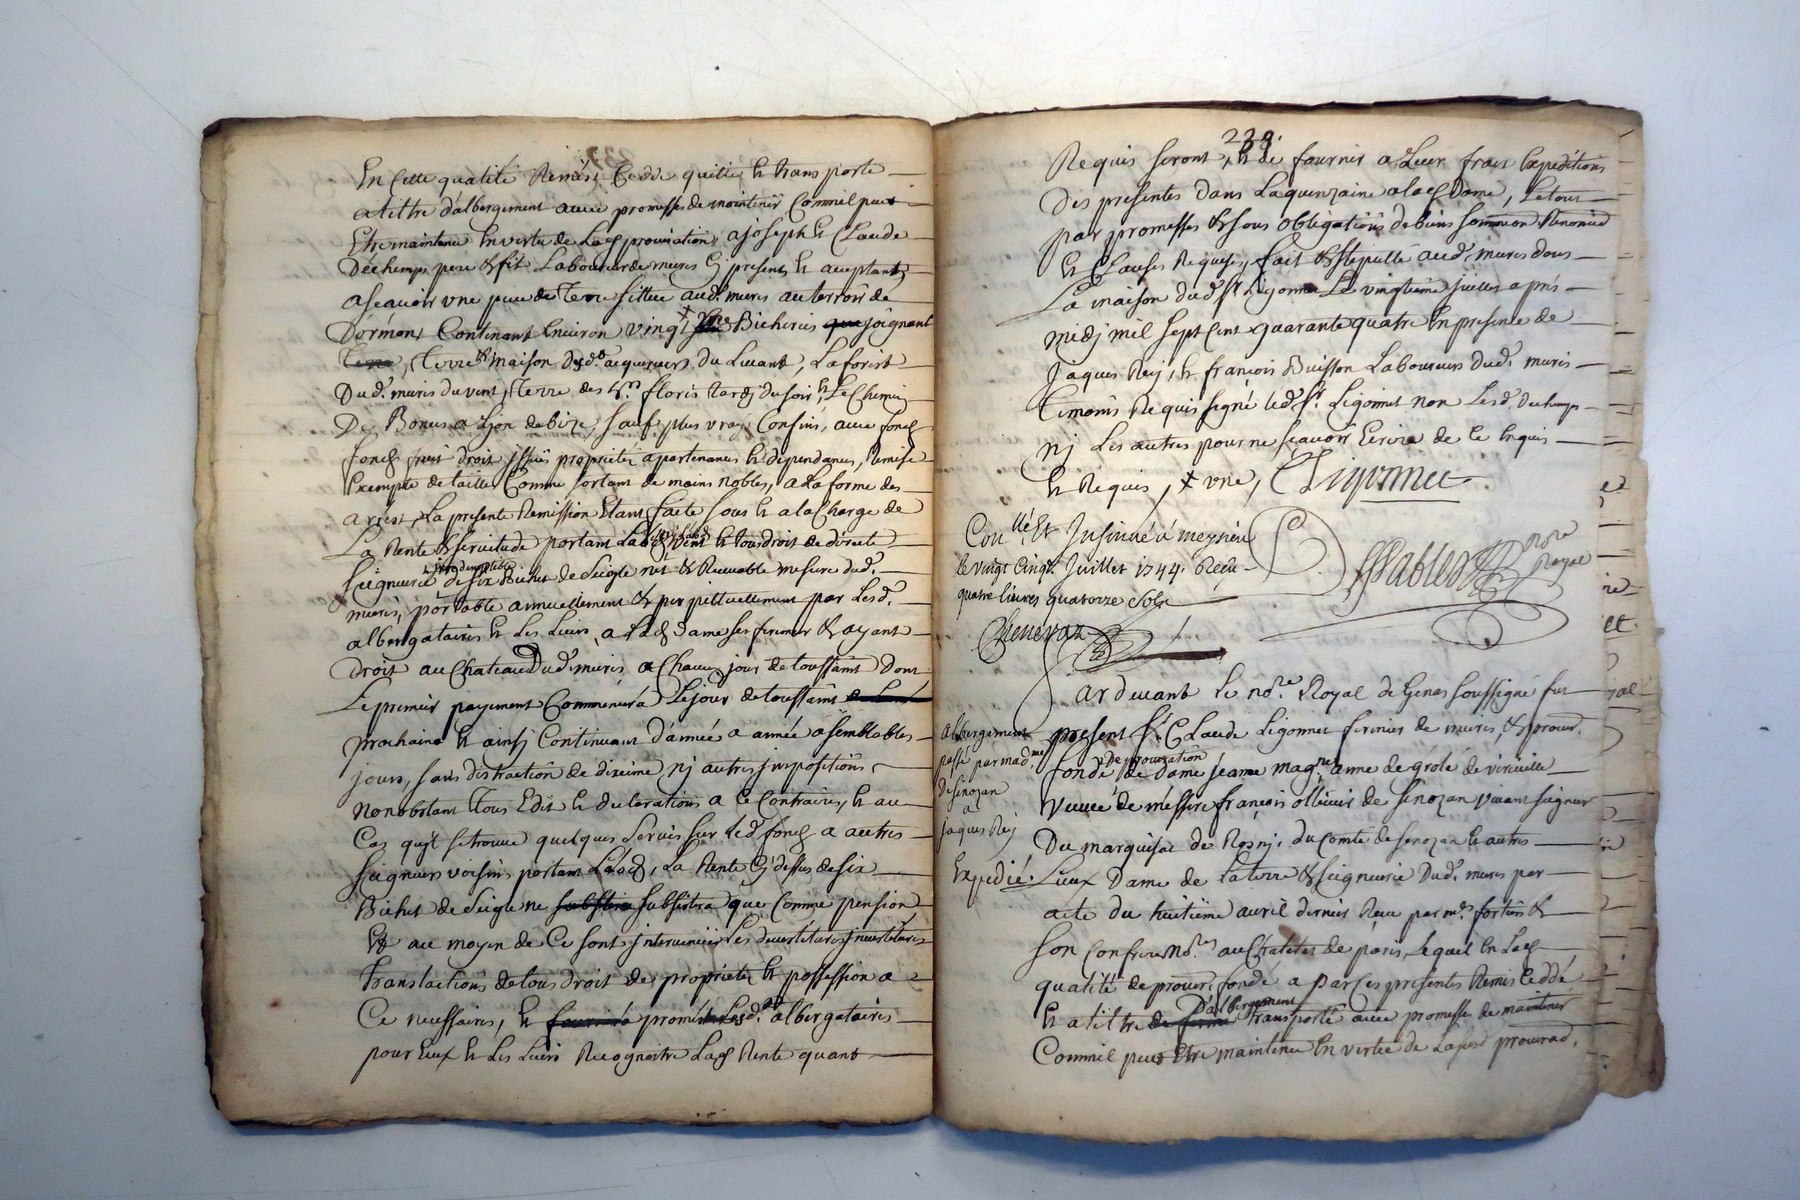 En Cette qualité Remis, Cedde quitté et transporte
a tiltre d'albergement avec promesses de maintenir Comme il peut
Etre maintenu En vertu de Lad procuration, a joseph et Claude
Déchemps pere & fil Laboureur de mures Cy present et aceptants
a scavoir une piece de Terre sittuée aud. mures au terroir de
Dormon, Contenant Environ vingt x Bicherées joignant
Terre & maison desd. acquereurs du Levant, La forest
Dud. mures du vent, Terre des h.rs floris tardi du soir, et Le Chemin
De a Lyon de bize, sauf plus vray Confins, avec fonds
fonds fruit droit jssües proprietés apartenances et dependances, Remise
Exempte de tailles Comme sortant de mains nobles, a La forme des
arrest, La presente Remission Etant faite sous et a la Charge de
La Rente & servitude portant Laods vent et tous droit de directe
Seigneurie de six Bichet de Seigle net & Recevable mesure dud.
mures, portable annuellement & perpetuellement par Lesd.
albergataires et Les Leurs, a Lad Dame ses fermier & ayant
droit au Chateau Dud. mures a Chaque jour de toussaint Dont
Le premier payement Commencera Le jour de toussaint
prochaine et ainsi Continuant D'année a année a semblables
jours, sans distraction de dixeime, nj autres jmpositions
nonobstant Tous Edit et declarations a Ce Contraires, et au
Cas qu'jl se trouve quelques Servis sur Led. fonds a autres
Seigneurs voisins portant Laods, La Rente Cy dessus de six
Bichet de Seigle ne subsistra que Comme pension
Et au moyen de Ce sont jntervenües Les devestitures jnvestitures
translactions de tous droit de proprietés et possession a
Ce necessaires, et promis Lesd. albergataires
pour Eux et Les Leurs Recognoitre Lad Rente quant
239.
Requis seront, et de fournir a Leur frais Expeditions
Des presentes dans La quinzaine a lad Dame, Le tout
par promesses & sous obligations de biens soumission Renonciõn
et Clauses Requises, fait & stipullé aud. mures dans
La maison dud. sr Ligonnet Le vingtième juillet après
midj mil sept Cent quarante quatre En presence de
Jaques Rej, et françois Buisson Laboureurs dud. mures
Temoins Requis signé led. sr Ligonnet non Lesd. dechemps
nj Les autres pour ne scavoir Ecrire de Ce Enquis
et Requis, x une, CLigonnet
Con.llé Et Insinué a meyzieu
le vingt Cinq. Juillet 1744. Reçu
quatre livres quatorze Sols
Chenevaz
Pablet
no.re
Royal
Pardevant le no.re Royal de Genas soussigné fut
present sr. Claude Ligonnet fermier de mures, & procur.
fondé de procuration de Dame jeanne mag.ne anne de grolé de virieüille
veuve de messire françois ollivier de senozan vivant seigneur
Du marquisat de Rosnj, du Comte de senozan et autres
Lieux Dame de La terre & seigneurie Dud. mures par
acte du huitième avril dernier Reçu par m.e fortier &
son Confrere No.res au Chatelet de paris, lequel En Lad
qualité de procur. fondé a par Ces presentes Remis Ceddé
et a tiltre D'albergement transporté avec promesse de maintenir
Comme il peut Etre maintenu En vertu de La procurad.
albergement
passé par mad.me
De senozan
a
jaques Rej
Expedié.